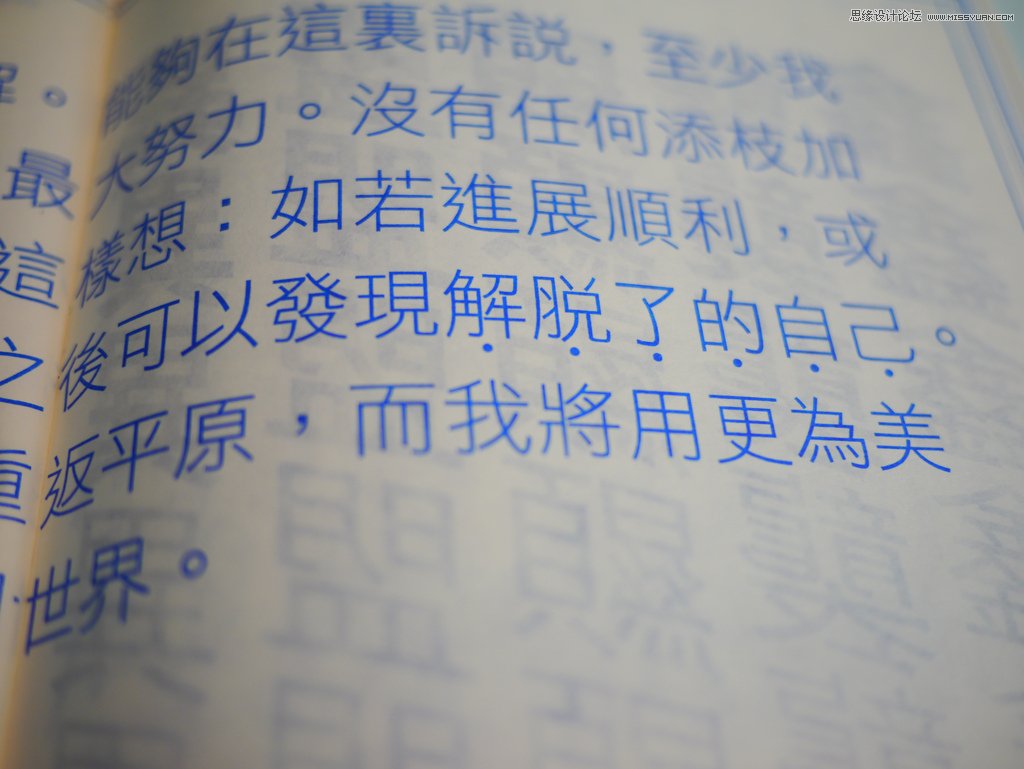 思缘设计论坛 WWW.MISSYUAN.COM
能夠在這裏訴説，至少我
大努力。沒有任何添枝加
樣想：如若進展順利，或
後可以發現解脱了的自己。
返平原，而我將用更為美
世界。
。
最
這
之
重